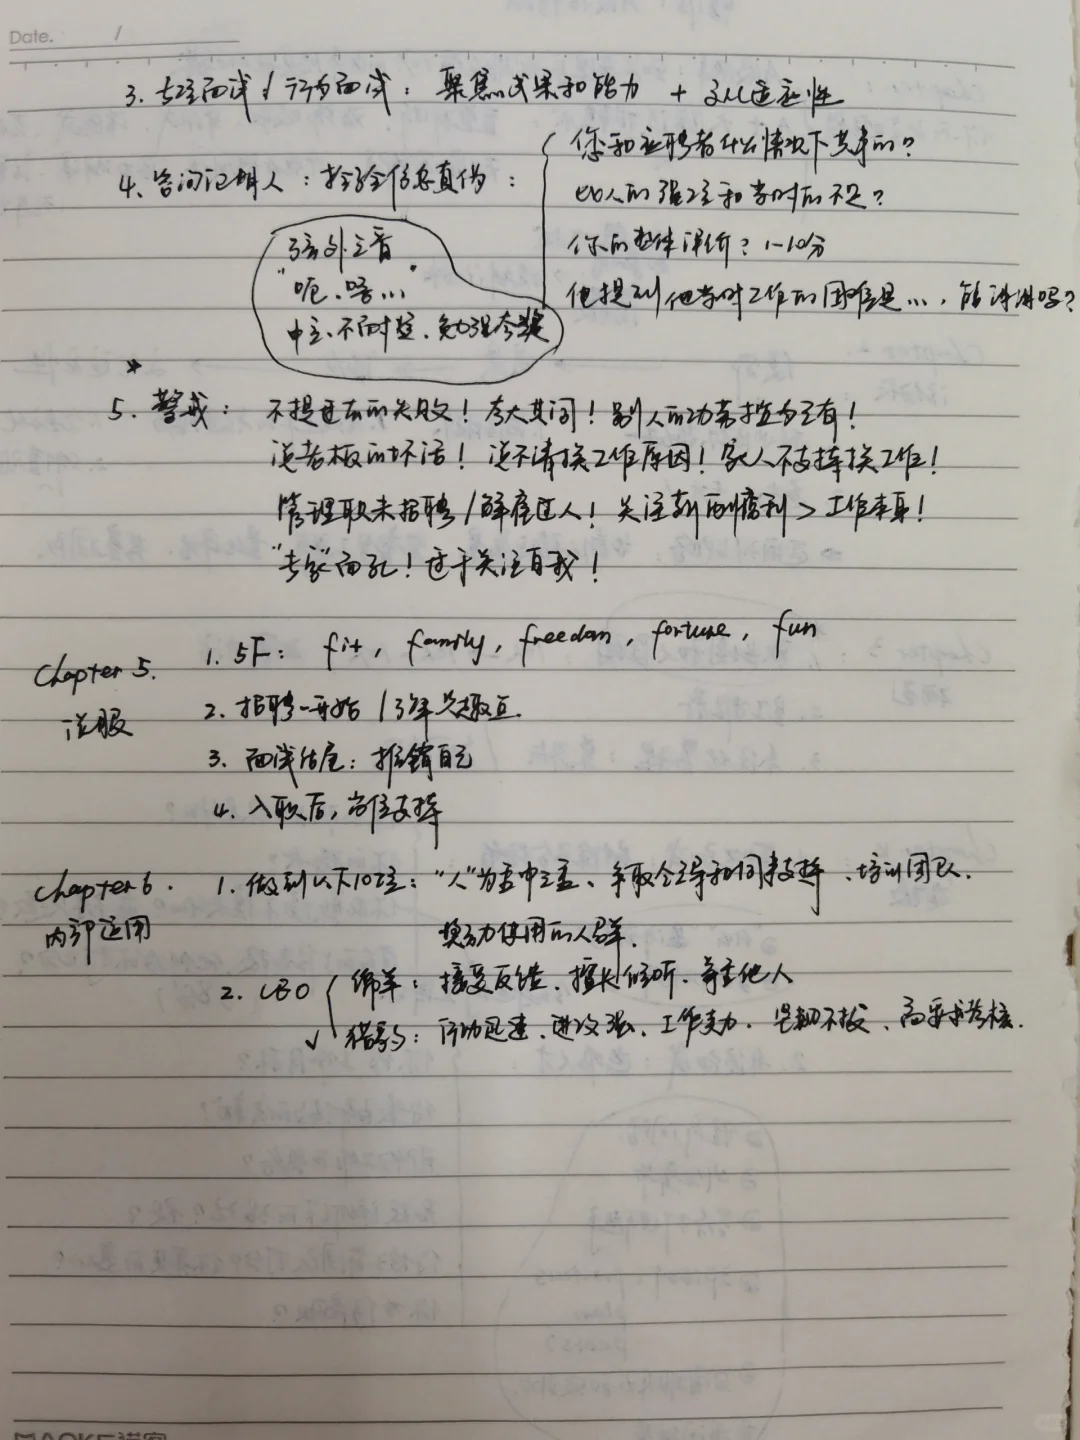 Date. /
3. 专注面试 / 行为面试：聚焦成果和能力 + 文化适应性
4. 咨询证明人：检验信息真伪：
您和应聘者什么情况下共事的？
此人的强项和当时的不足？
你的整体评价？1-10分
他提到他当时工作的困难是…，能讲讲吗？
弦外之音
"呃、嗯…"
中立、不耐烦、勉强夸奖
5. 警戒：不提过去的失败！夸大其词！别人的功劳据为己有！
说老板的坏话！说不清换工作原因！家人不支持换工作！
管理职未招聘/解雇过人！关注薪酬福利 > 工作本身！
"专家"面孔！过于关注自我！
Chapter 5.
说服
1. 5F： fit, family, freedom, fortune, fun
2. 招聘一开始 / 了解兴趣点
3. 面试结尾：推销自己
4. 入职后，岗位支持
Chapter 6.
内部运用
1. 做到以下10项："人"为重中之重、争取全导和同事支持、培训团队、
奖励使用的人群.
2. CEO
绵羊：接受反馈、擅长倾听、尊重他人
✓ 猎豹：行动迅速、进攻强、工作卖力、坚韧不拔、高要求考核.